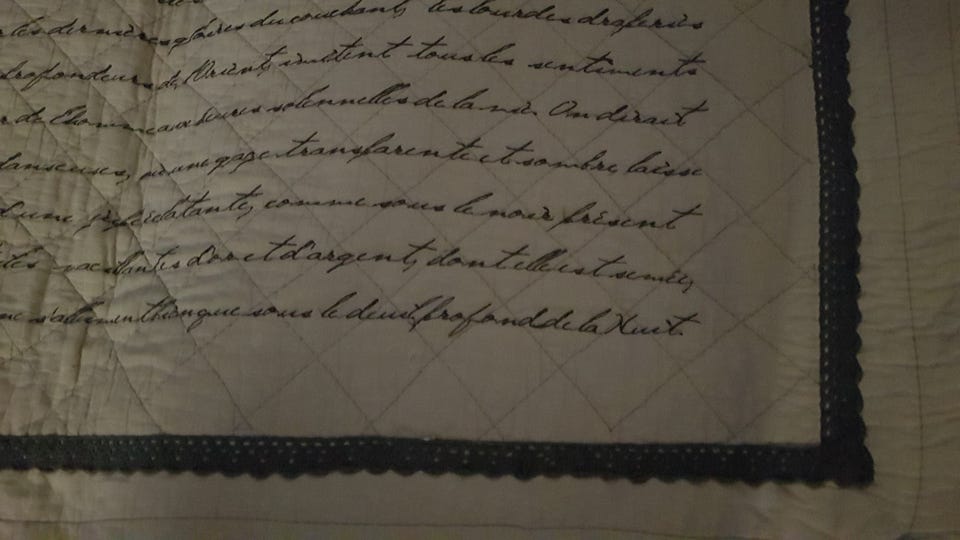 les dernières gloires du couchant, les lourdes draperies
profondeurs de l'Orient, imitent tous les sentiments
de l'homme aux heures solennelles de la vie. On dirait
danseuses, où une gaze transparente et sombre laisse
d'une jupe éclatante, comme sous le noir présent
vacillantes d'or et d'argent, dont elle est semée,
s'allument bien que sous le deuil profond de la Nuit.